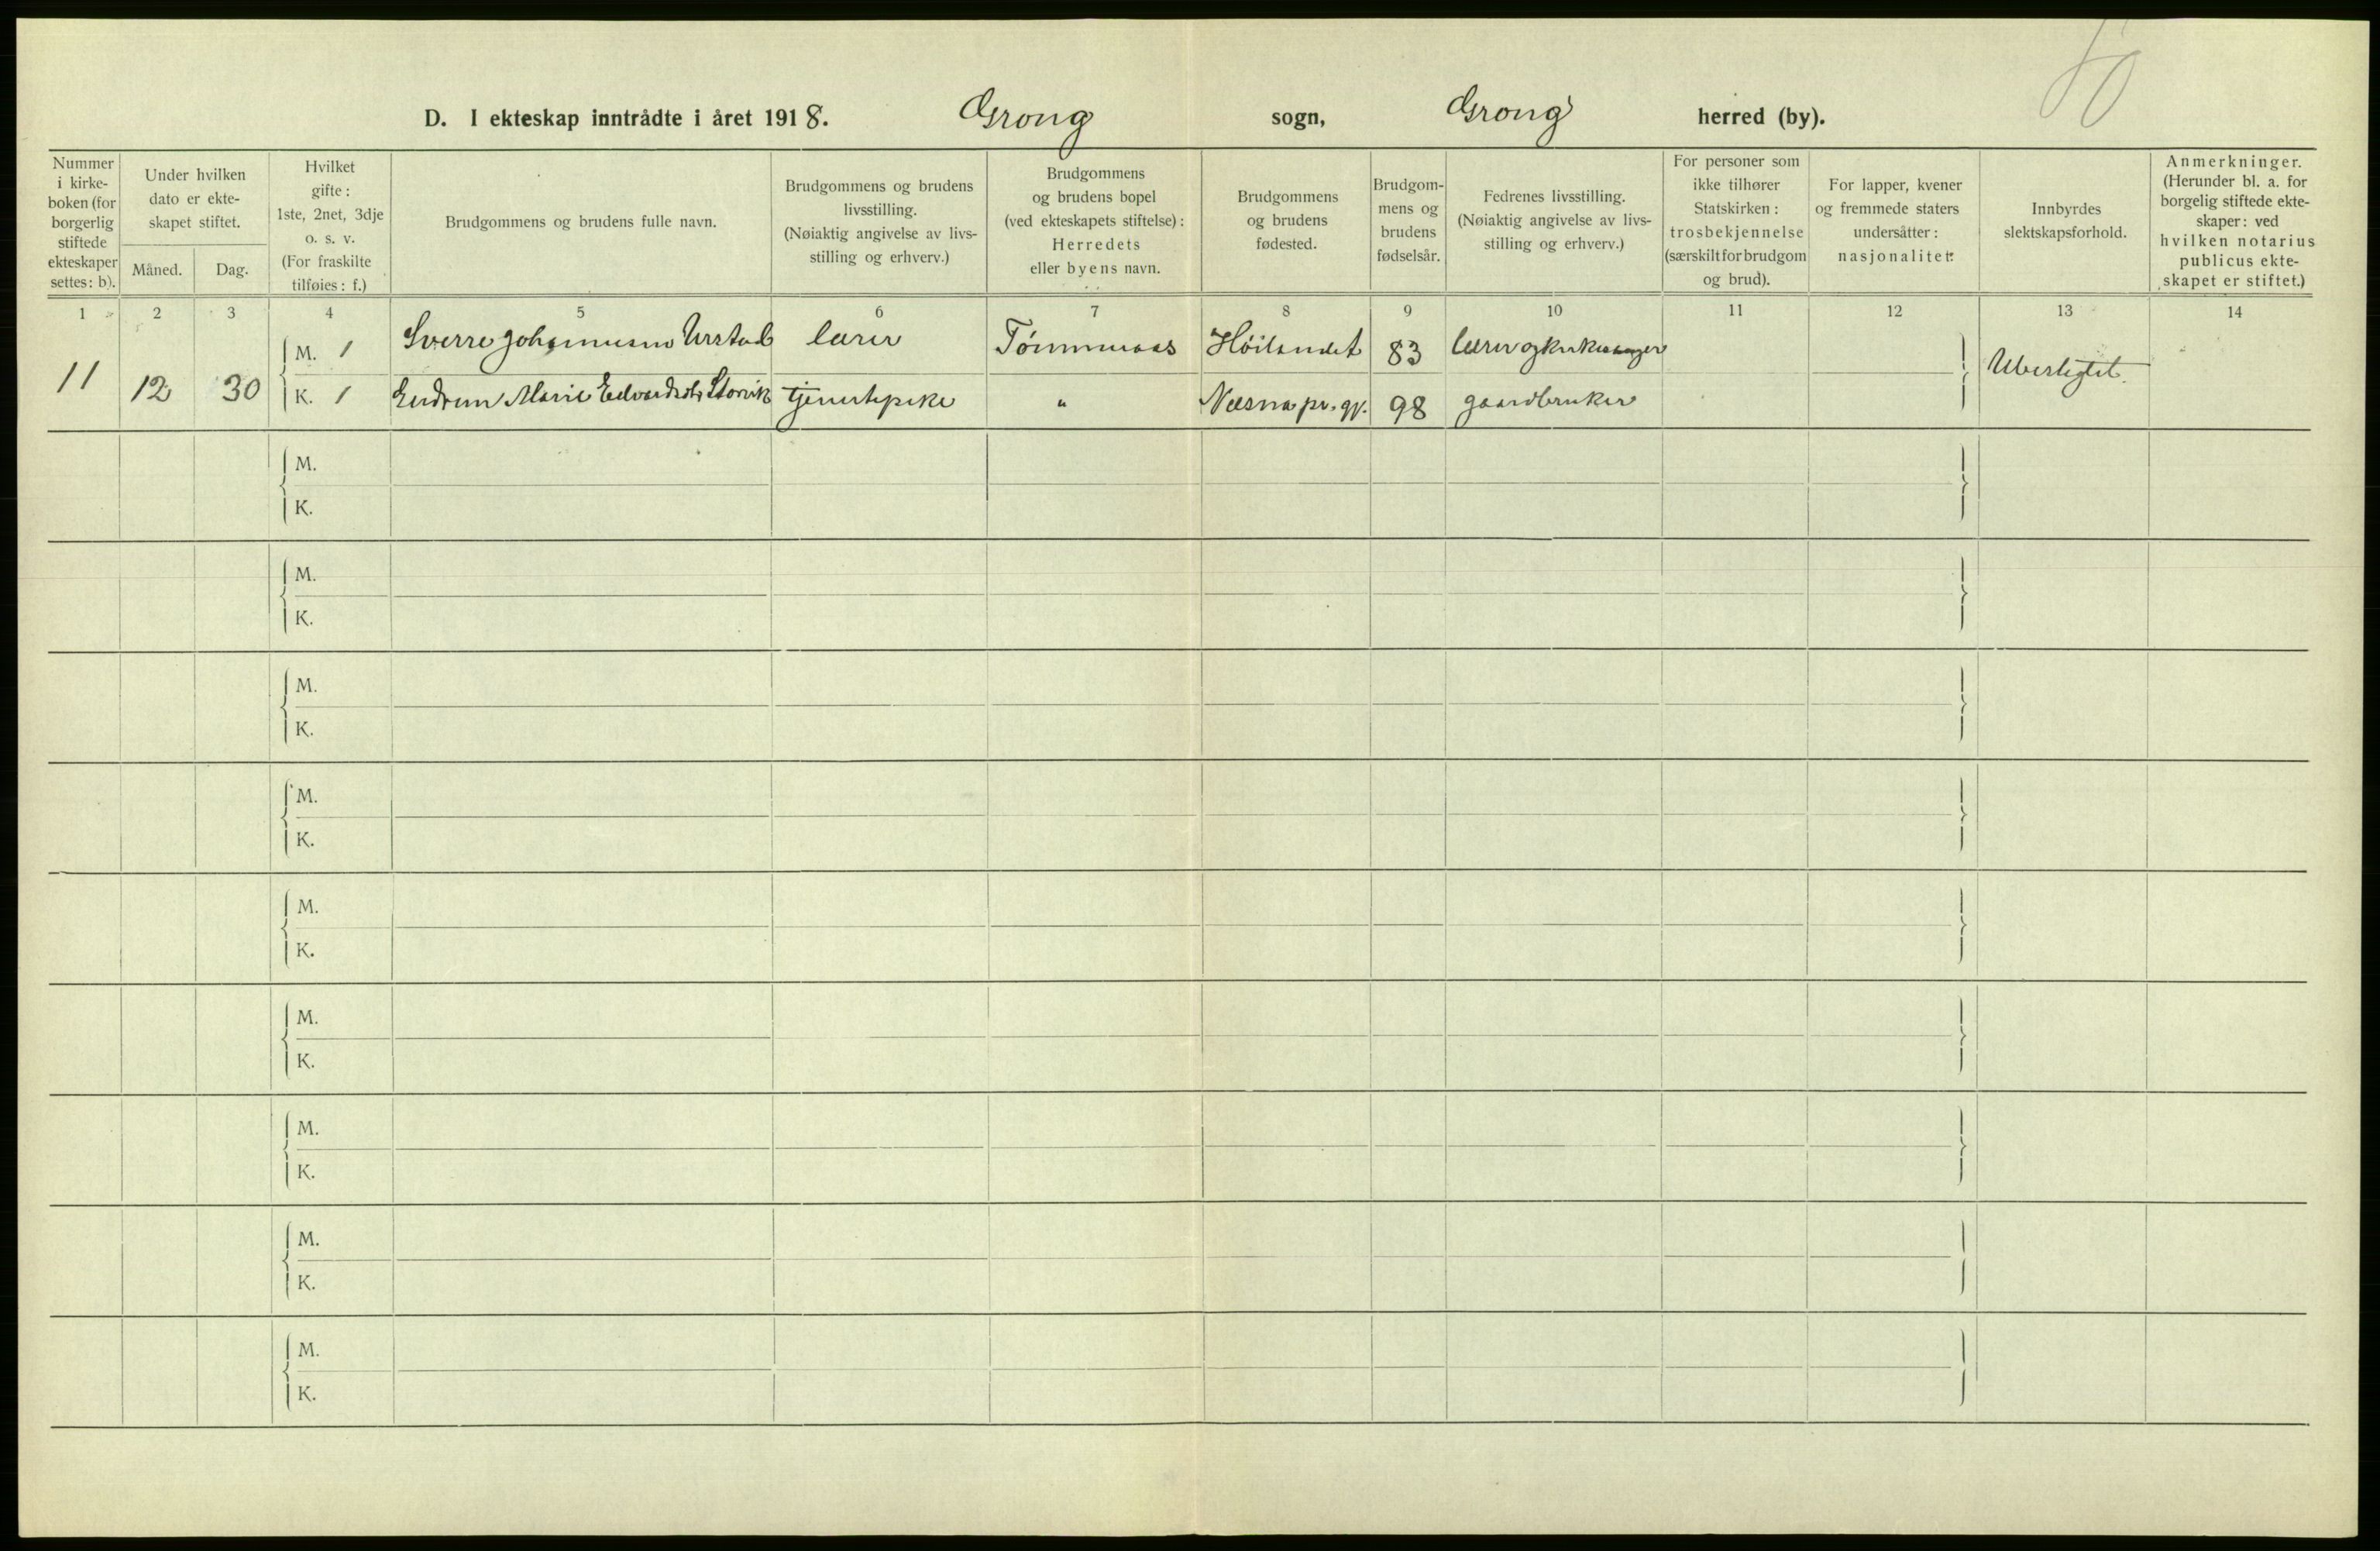 D. I ekteskap inntrådte i året 1918. Grong sogn, Grong herred (by).
Nummer
i kirke-
boken (for
borgerlig
stiftede
ekteskaper
settes: b).
Under hvilken
dato er ekte-
skapet stiftet.
Måned. Dag.
Hvilket
gifte:
1ste, 2net, 3dje
o. s. v.
(For fraskilte
tilføies: f.)
Brudgommens og brudens fulle navn.
Brudgommens og brudens
livsstilling.
(Nøiaktig angivelse av livs-
stilling og erhverv.)
Brudgommens
og brudens bopel
(ved ekteskapets stiftelse):
Herredets
eller byens navn.
Brudgommens
og brudens
fødested.
Brudgom-
mens og
brudens
fødselsår.
Fedrenes livsstilling.
(Nøiaktig angivelse av livs-
stilling og erhverv.)
For personer som
ikke tilhører
Statskirken:
trosbekjennelse
(særskilt for brudgom
og brud).
For lapper, kvener
og fremmede staters
undersåtter:
nasjonalitet.
Innbyrdes
slektskapsforhold.
Anmerkninger.
(Herunder bl. a. for
borgelig stiftede ekte-
skaper: ved
hvilken notarius
publicus ekte-
skapet er stiftet.)
1 2 3 4 5 6 7 8 9 10 11 12 13 14
M. 1 Sverre Johannesen Urstad lærer Tømmeraas Höilandet 83 lærer og kirkesanger
11 12 30 Ubeslegtet.
K. 1 Gudrun Marie Edvardsdtr Storvik tjenestepike " Næsna pr. gj. 98 gaardbruker
M.
K.
M.
K.
M.
K.
M.
K.
M.
K.
M.
K.
M.
K.
M.
K.
M.
K.